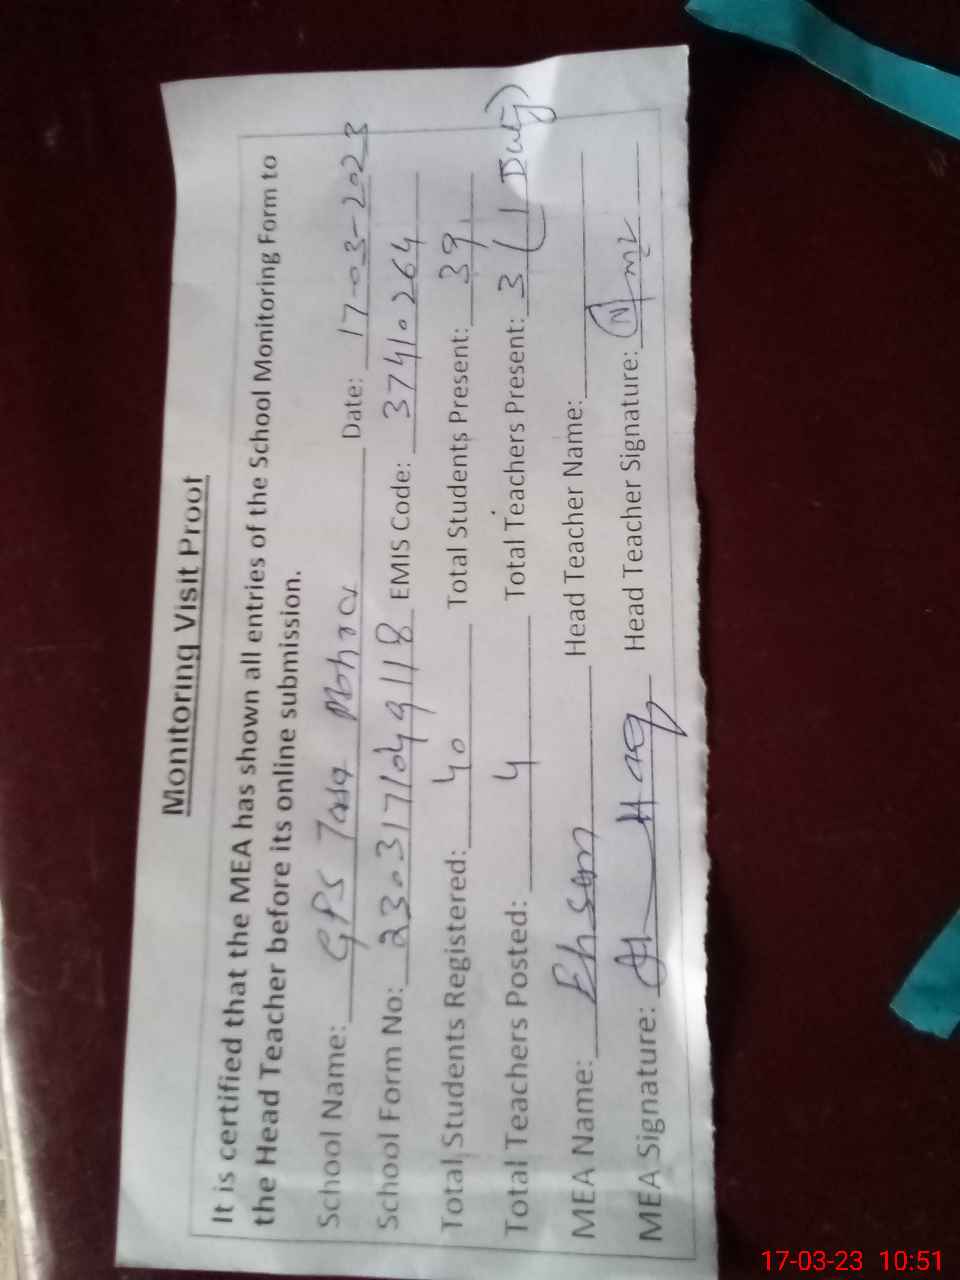 Monitoring Visit Proof
It is certified that the MEA has shown all entries of the School Monitoring Form to
the Head Teacher before its online submission.
School Name: GPS Date: 17-03-2023
School Form No: 2303171049118 EMIS Code: 37410264
Total Students Registered: 40 Total Students Present: 39
Total Teachers Posted: 4 Total Teachers Present: 3 (1 Duty)
MEA Name: Ehsan Head Teacher Name:
MEA Signature: Haq Head Teacher Signature:
17-03-23 10:51